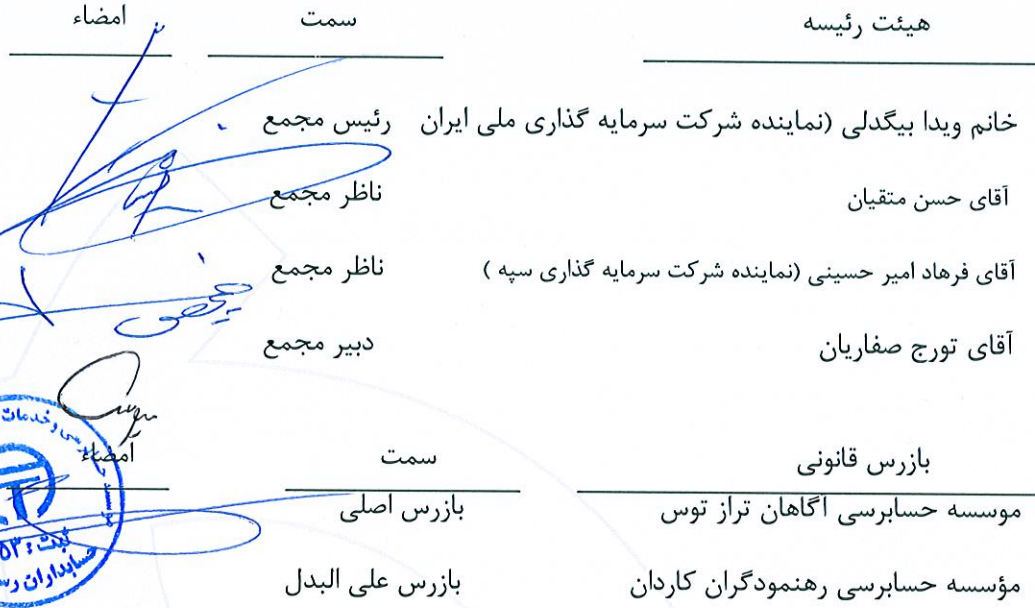 هیئت رئیسه سمت امضاء
خانم ویدا بیگدلی (نماینده شرکت سرمایه گذاری ملی ایران رئیس مجمع
آقای حسن متقیان ناظر مجمع
آقای فرهاد امیر حسینی (نماینده شرکت سرمایه گذاری سپه ) ناظر مجمع
آقای تورج صفاریان دبیر مجمع
بازرس قانونی سمت امضاء
موسسه حسابرسی آگاهان تراز توس بازرس اصلی
مؤسسه حسابرسی رهنمودگران کاردان بازرس علی البدل